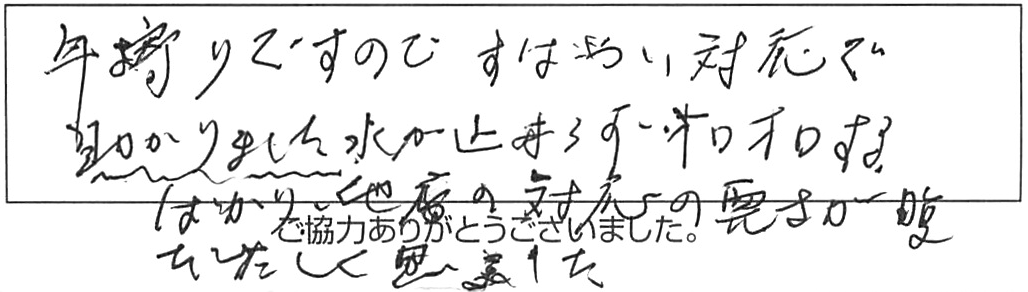 年寄りですので すばやい対応で
助かりました水が止まらずオロオロする
ばかり、他店の対応の悪さが腹
ご協力ありがとうございました。
だたしく思いました